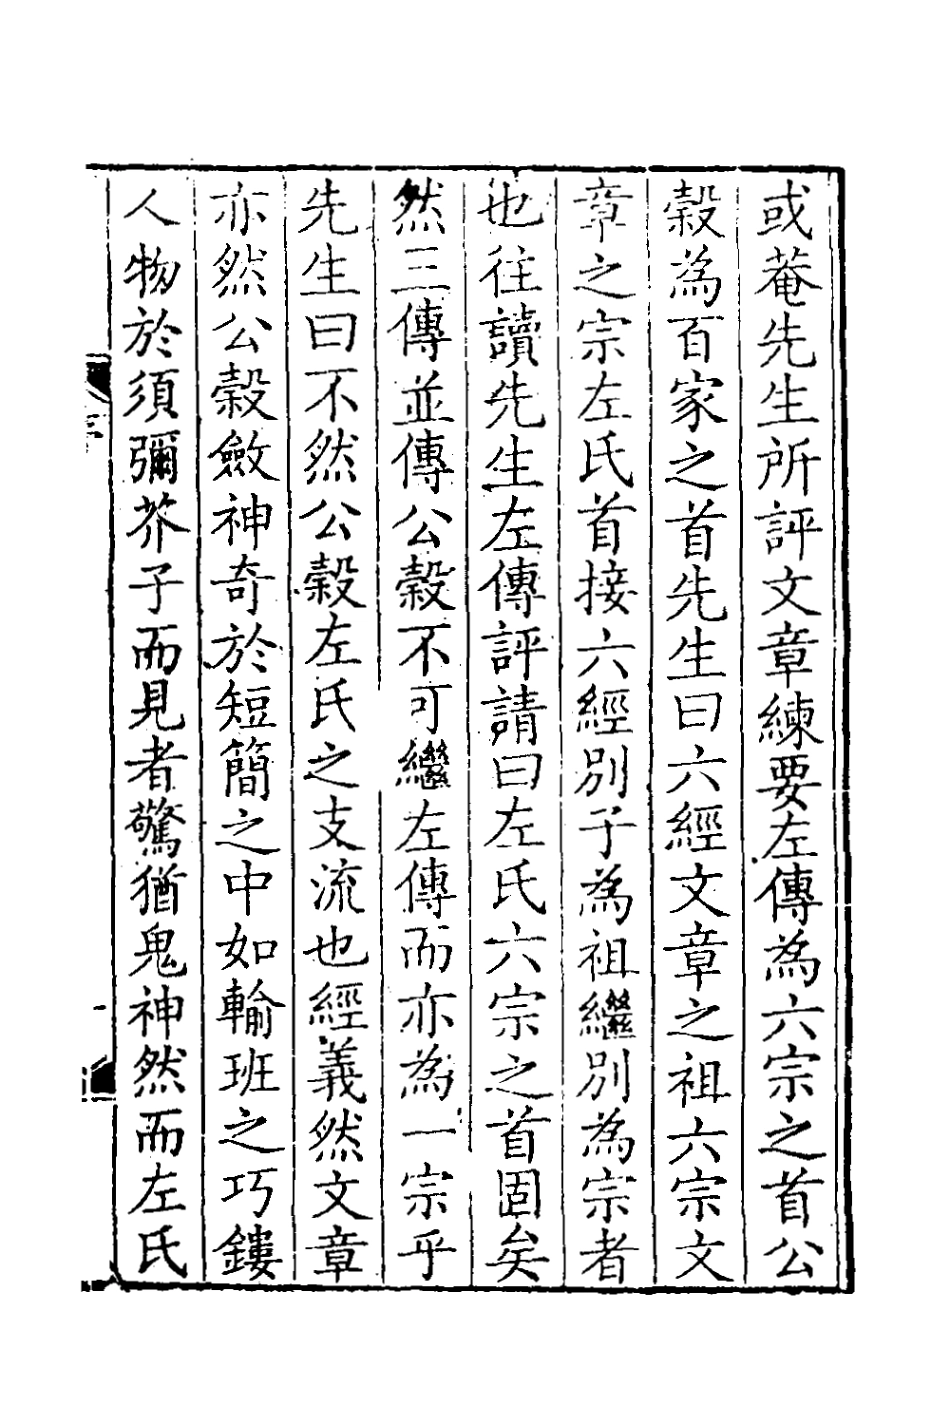 或菴先生所評文章練要左傳為六宗之首公
穀為百家之首先生曰六經文章之祖六宗文
章之宗左氏首接六經別子為祖繼別為宗者
也往讀先生左傳評請曰左氏六宗之首固矣
然三傳並傳公穀不可繼左傳而亦為一宗乎
先生曰不然公穀左氏之支流也經義然文章
亦然公穀斂神奇於短簡之中如輸班之巧鏤
人物於須彌芥子而見者驚猶鬼神然而左氏